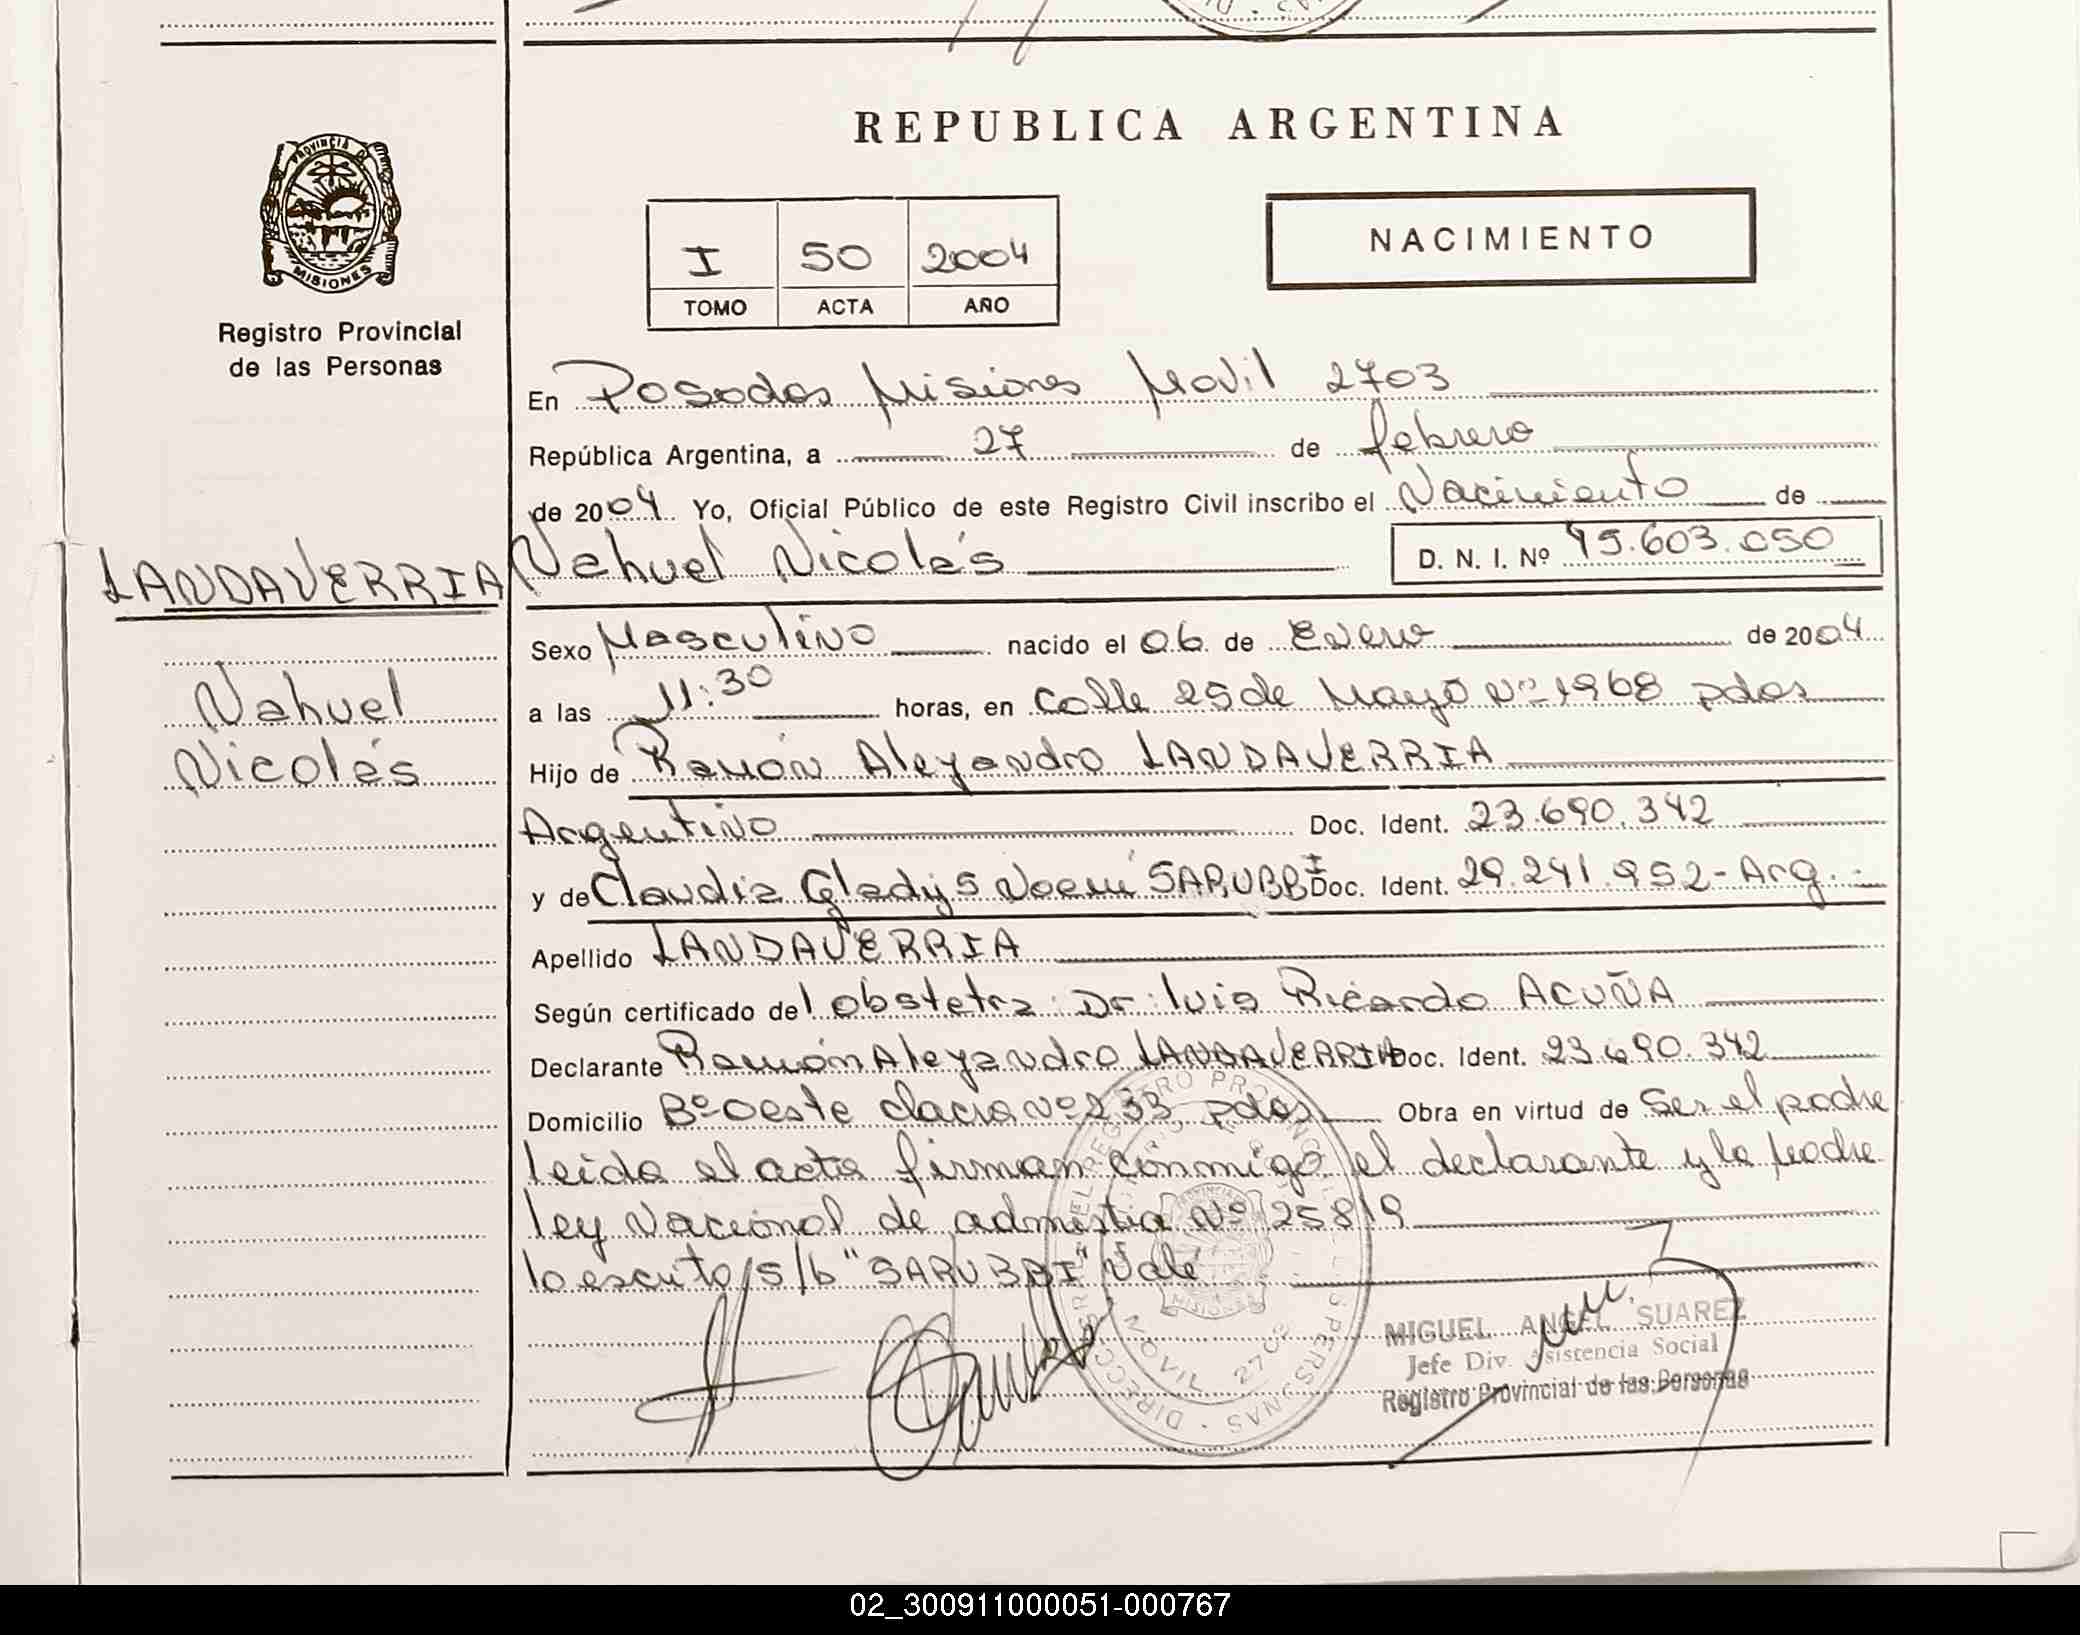 REPUBLICA ARGENTINA
PROVINCIA DE
MISIONES
Registro Provincial
de las Personas
I 50 2004
TOMO ACTA AÑO
NACIMIENTO
En Posadas Misiones Movil 2703
República Argentina, a 27 de febrero
de 2004 Yo, Oficial Público de este Registro Civil inscribo el Nacimiento de
LANDAVERRIA
Nahuel Nicolás D. N. I. Nº 45.603.050
Nahuel
Nicolás
Sexo Masculino nacido el 06 de Enero de 2004
a las 11:30 horas, en Calle 25 de Mayo Nº 1968 pdas
Hijo de Ramón Alejandro LANDAVERRIA
Argentino Doc. Ident. 23.690.342
y de Claudia Gladys Noemí SARUBBI Doc. Ident. 29.241.952- Arg.-
Apellido LANDAVERRIA
Según certificado del obstetra Dr: luis Ricardo ACUÑA
Declarante Ramón Alejandro LANDAVERRIA Doc. Ident. 23.690.342
Domicilio Bº Oeste chacra Nº 233 pdas Obra en virtud de Ser el padre
leida el acta firman conmigo el declarante y la Madre
ley Nacional de admistia Nº 25819
lo escrito s/b "SARUBBI" Vale
MIGUEL ANGEL SUAREZ
Jefe Div. Asistencia Social
Registro Provincial de las Personas
MOVIL 2703
02_300911000051-000767